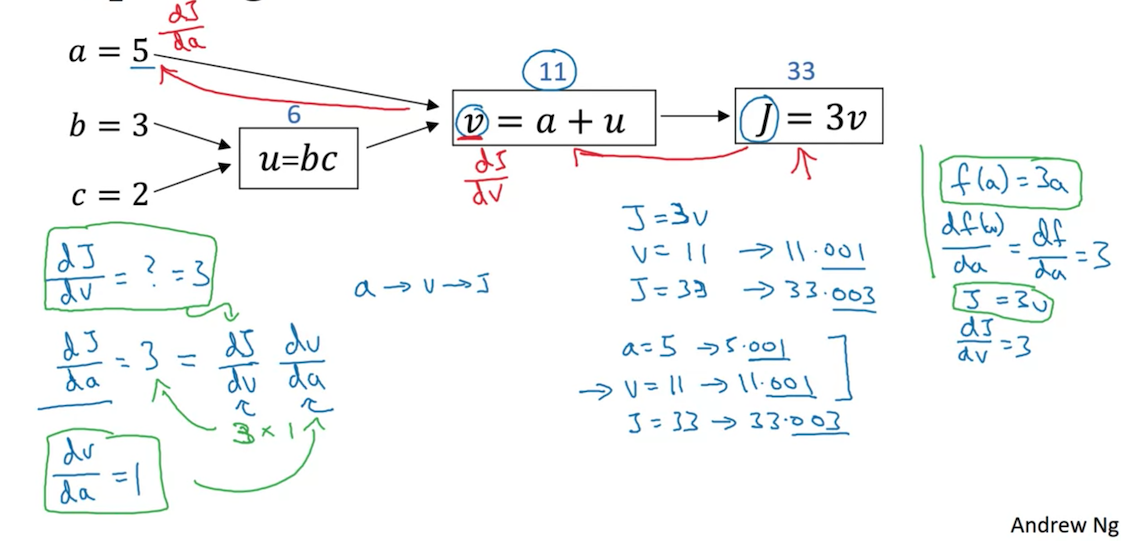 dJ/da
a = 5
b = 3
c = 2
6
u=bc
11
v = a + u
dJ/dv
33
J = 3v
dJ/dv = ? = 3
dJ/da = 3 = dJ/dv dv/da
3 × 1
dv/da = 1
a → v → J
J = 3v
v = 11 → 11.001
J = 33 → 33.003
a = 5 → 5.001
→ v = 11 → 11.001
J = 33 → 33.003
f(a) = 3a
df(a)/da = df/da = 3
J = 3v
dJ/dv = 3
Andrew Ng